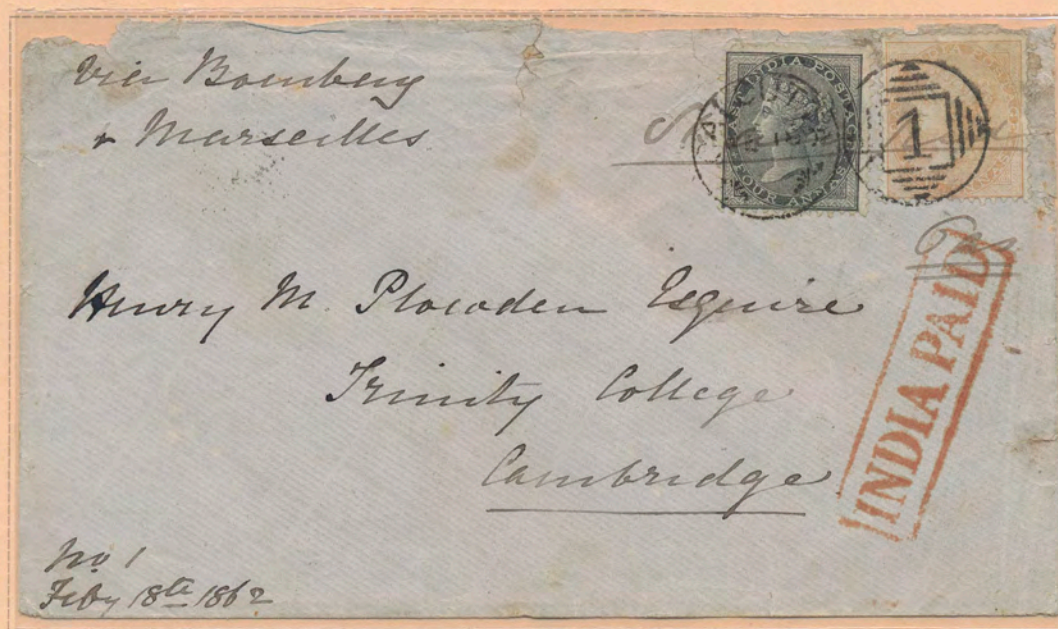 Via Bombay
& Marseilles
EAST INDIA POSTAGE
FOUR ANNAS
CALCUTTA
1
INDIA PAID
Henry M. Plowden Esquire
Trinity College
Cambridge
No 1
Feby 18th 1862